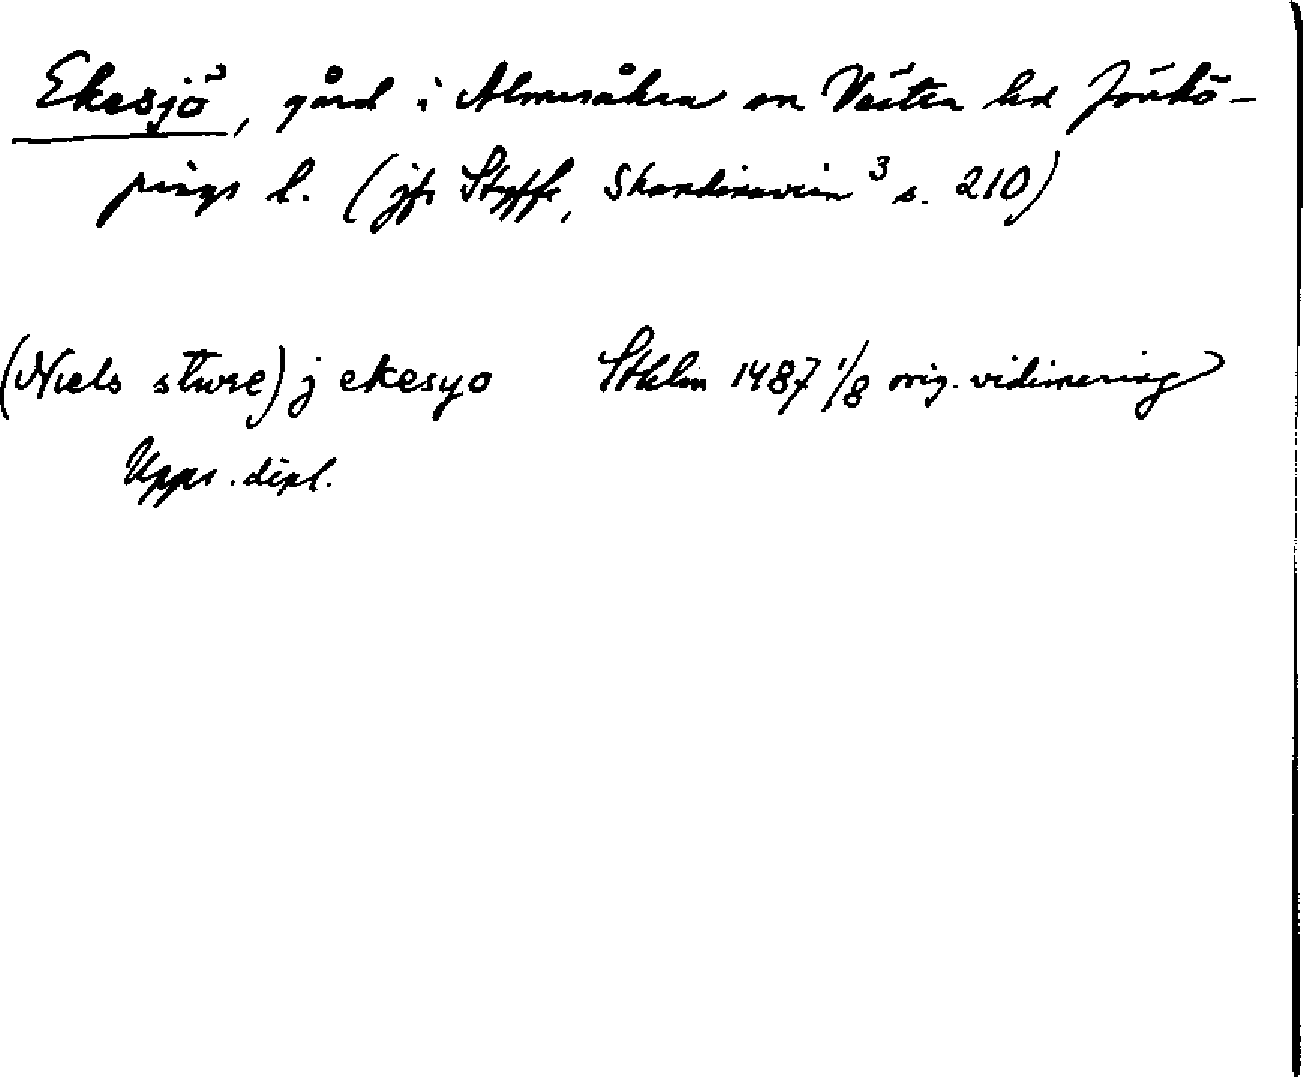 Ekesjö, gård i Almesåkra sn Västra hd Jönkö-
pings l. (jfr Styffe, Skandinavien³ s. 210)
(Niels sture) j ekesyo Sthlm 1487 1/8 orig. vidimering
Upps. dipl.